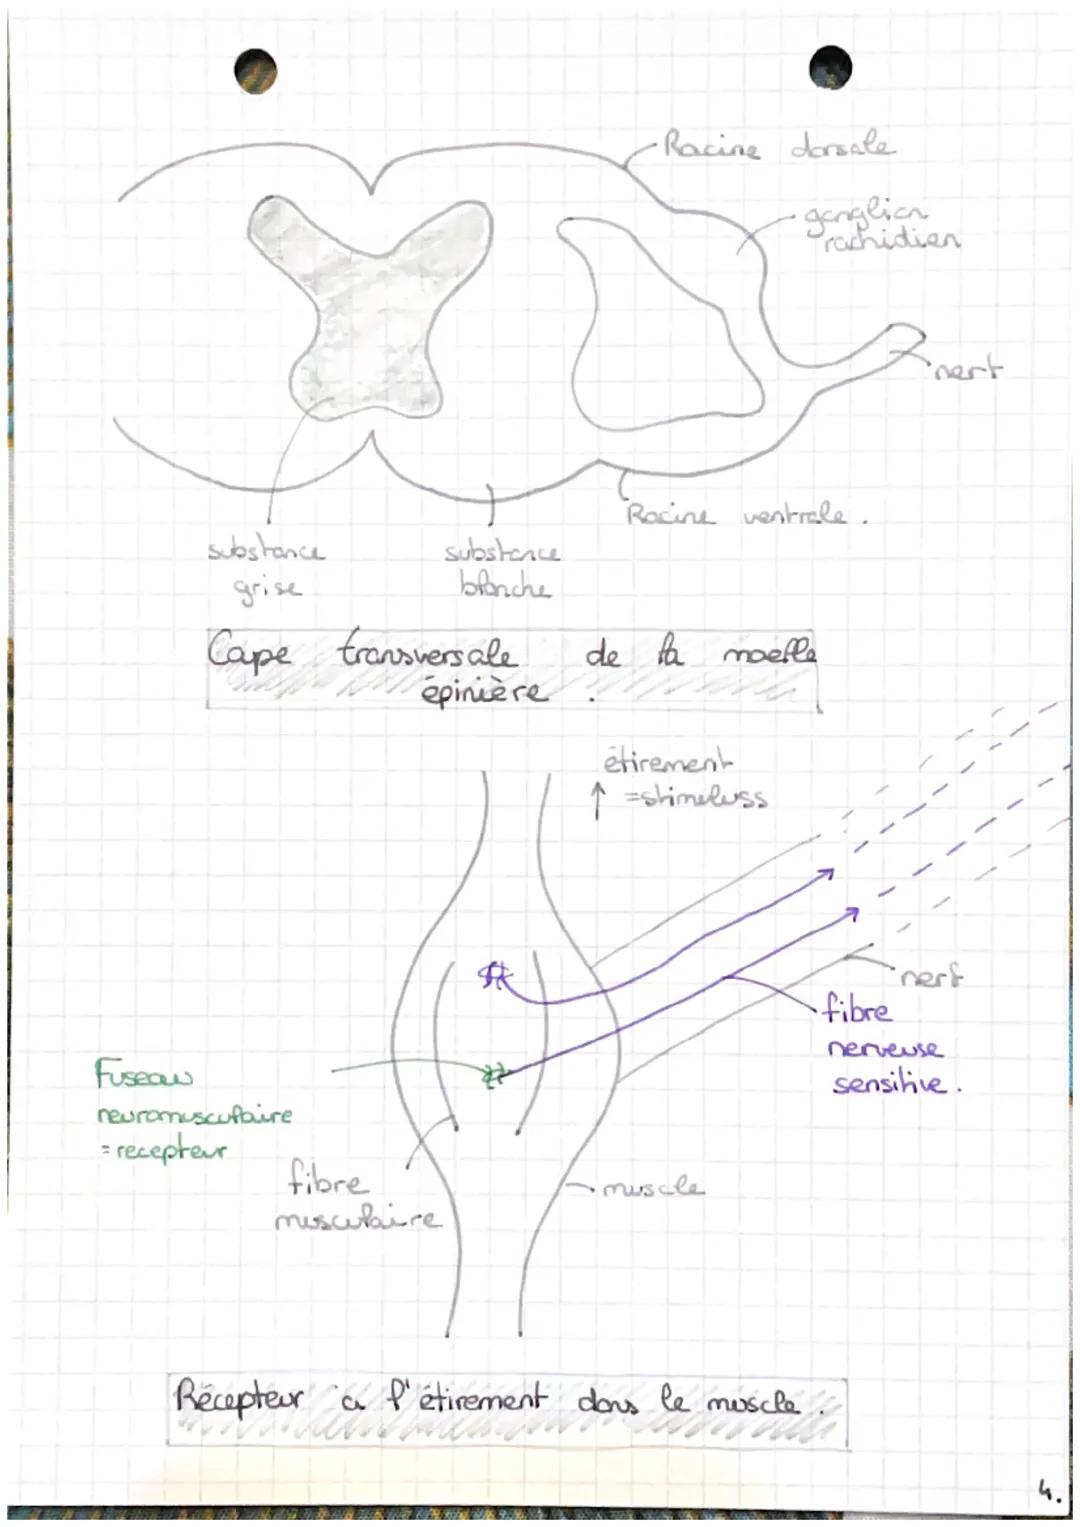 Racine dorsale
ganglion
rachidien
nerf
Racine ventrale.
substance
grise
substance
blanche
Coupe transversale de la moelle
épinière.
étirement
↑ =stimeluss
nerf
fibre
nerveuse
sensitive.
Fuseau
neuromusculaire
= recepteur
fibre
musculaire
muscle
Récepteur à l'étirement dans le muscle.
4.